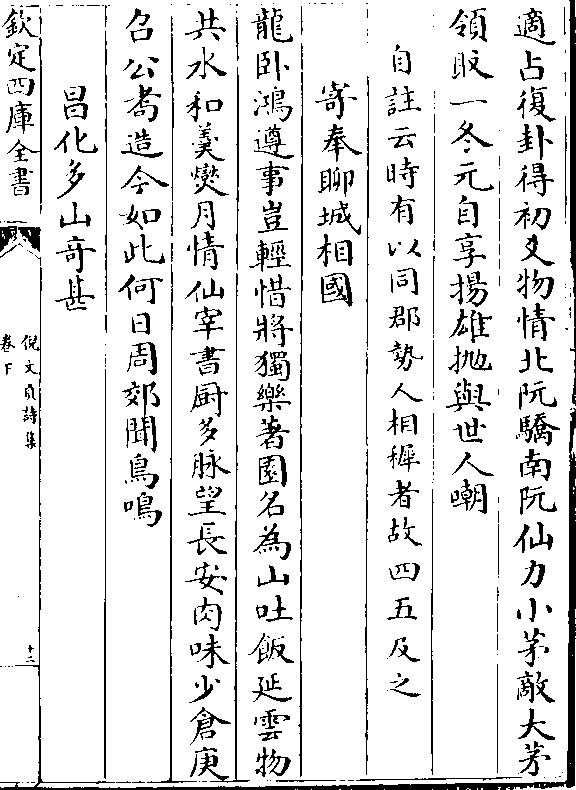 適占復卦得初爻物情北阮驕南阮仙力小茅敵大茅
領取一冬元自享揚雄抛與世人嘲
自註云時有以同郡勢人相稺者故四五及之
寄奉聊城相國
龍卧鴻遵事豈輕惜將獨樂著園名為山吐飯延雲物
共水和羮爕月情仙宰書厨多脉望長安肉味少倉庚
召公耈造今如此何日周郊聞鳥鳴
昌化多山奇甚
欽定四庫全書
倪文貞詩集
卷下
十二